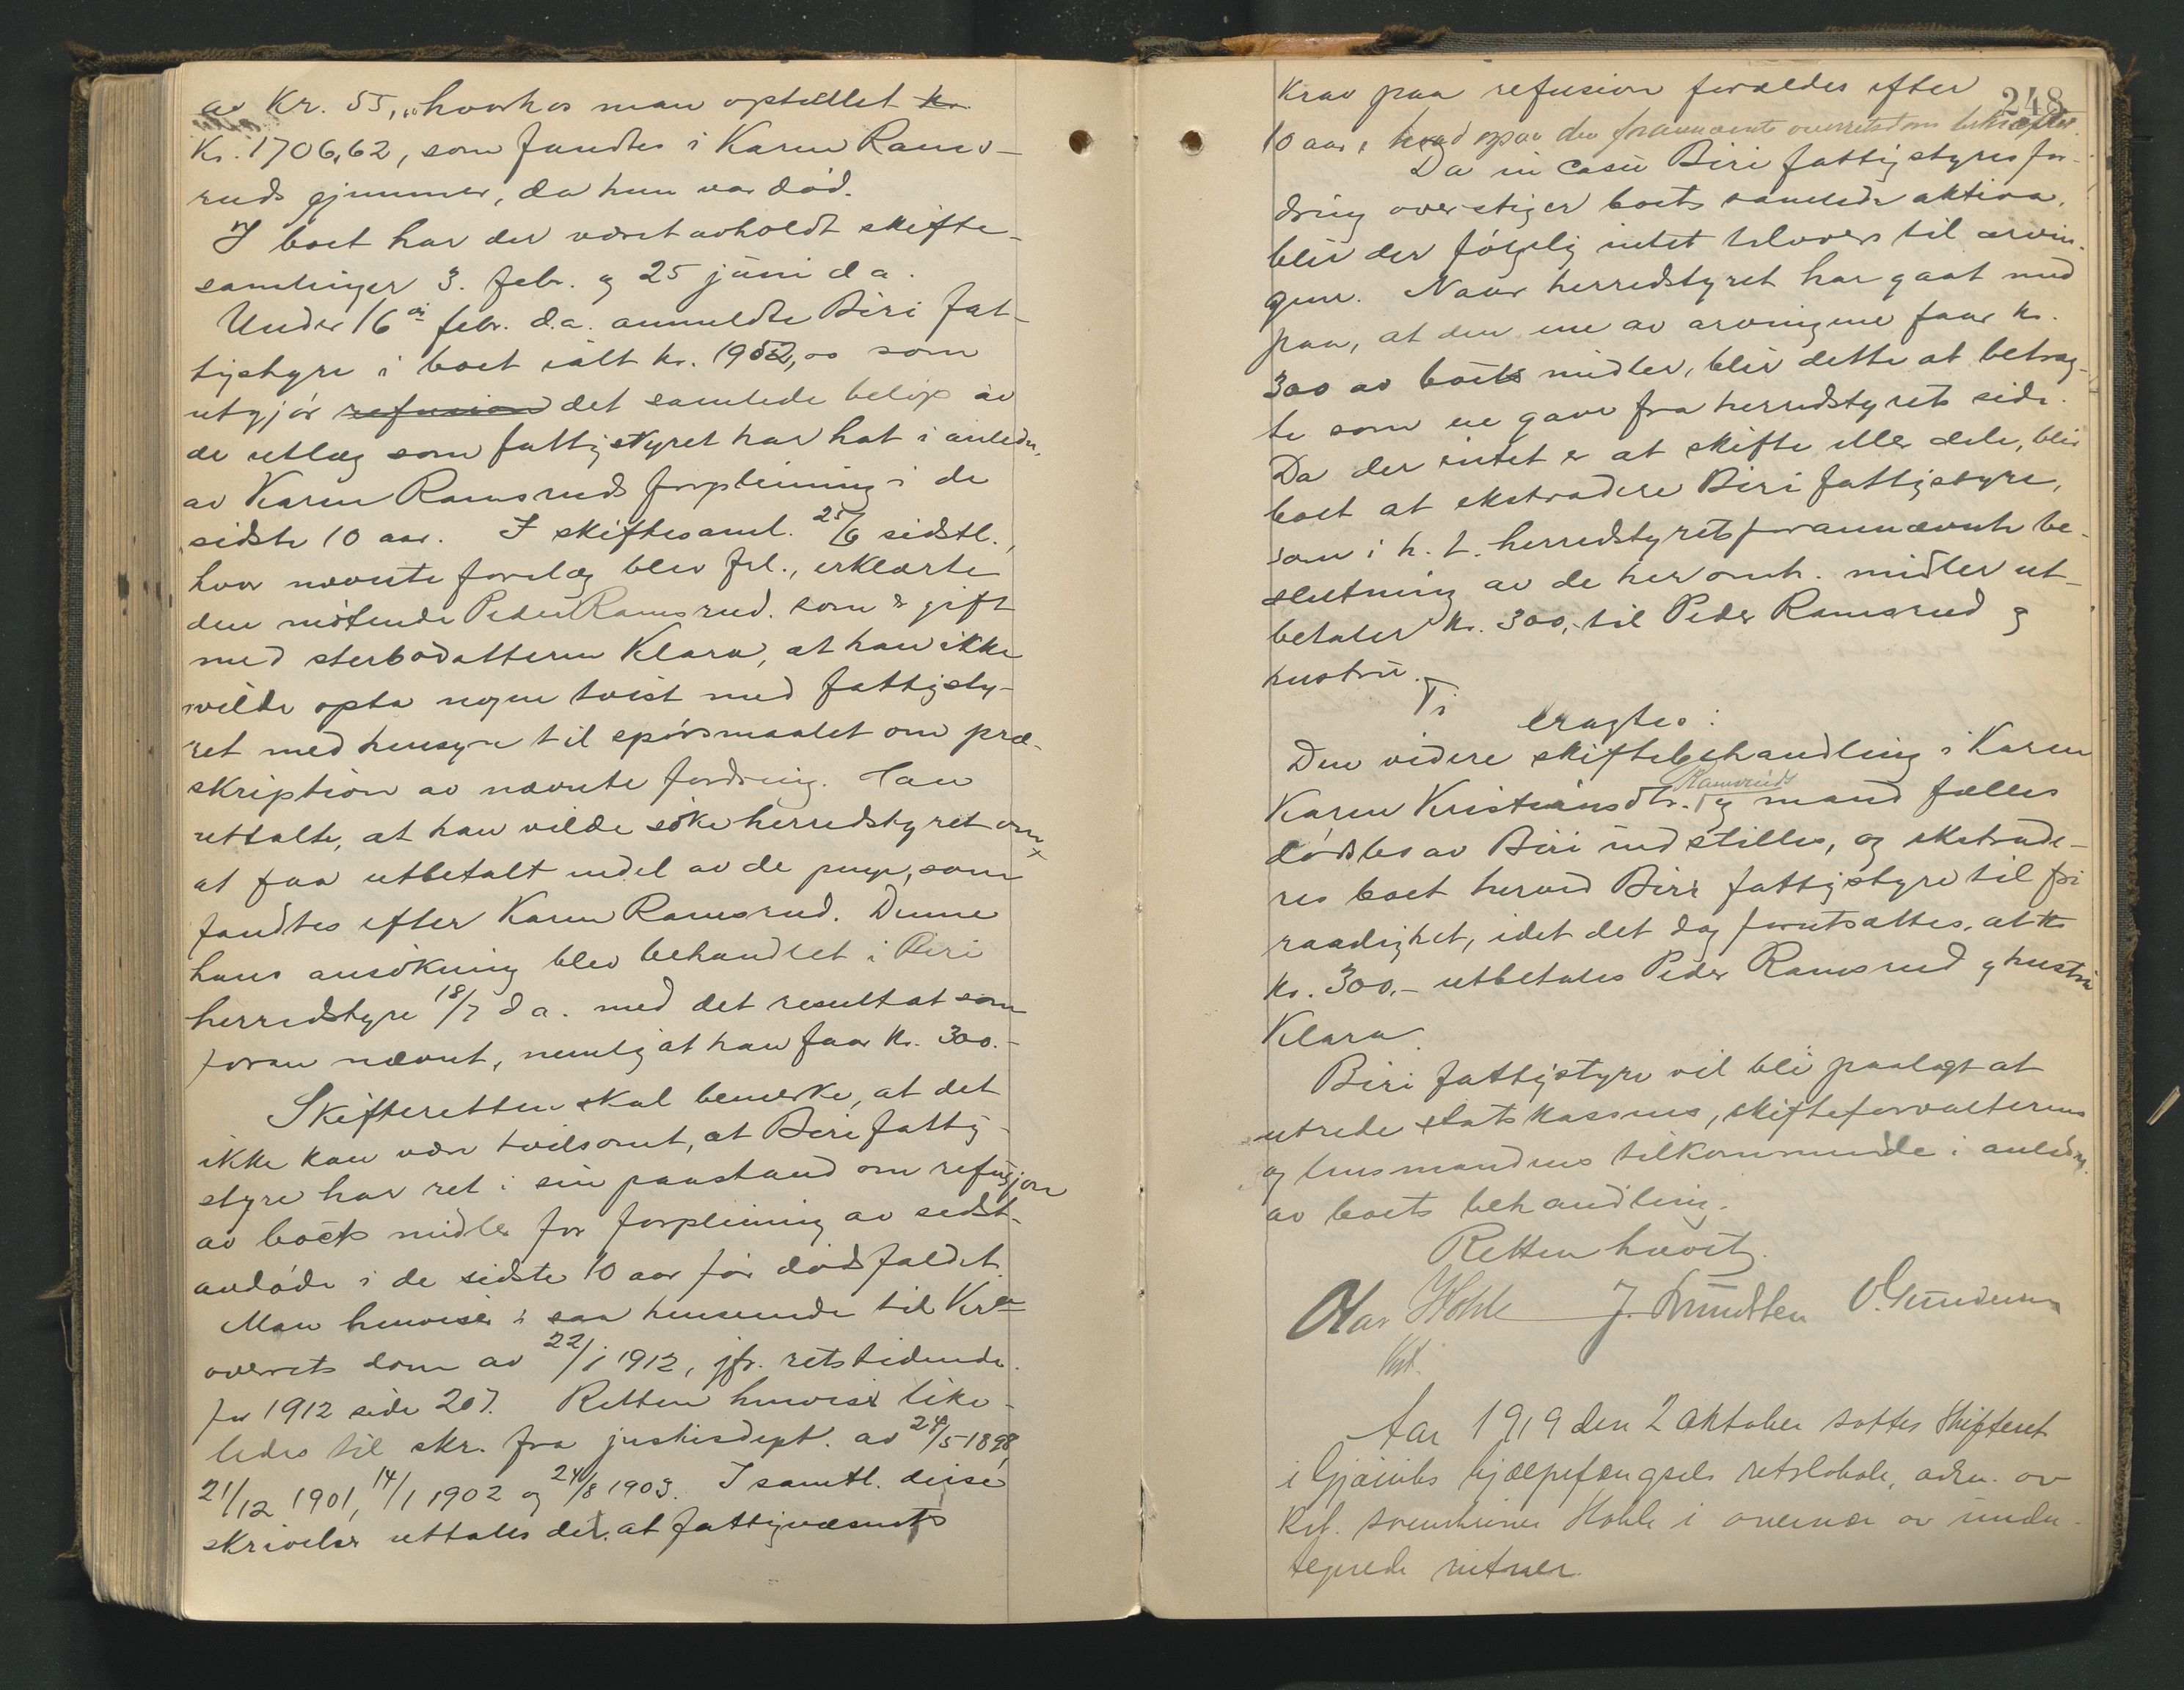 av Kr. 55,00 hvorhos man optællet kr.
Kr. 1706,62, som fandtes i Karen Rams-
ruds gjemmer, da hun var död.
I boet har der været avholdt skifte-
samlinger 3. febr. og 25 juni d a.
Under 16de febr. d.a. anmeldte Biri fat-
tigstyre i boet ialt kr. 1952,00 som
utgjör refusion det samlede belöp av
de utlæg som fattigstyret har hat i anledn.
av Karen Ramsruds forpleining i de
sidste 10 aar. I skiftesaml. 25/6 sidstl.,
hvor nævnte forelæg blev frl., erklærte
den mötende Peder Ramsrud. som er gift
med sterbodatteren Klara, at han ikke
vilde opta nogen tvist med fattigsty-
ret med hensyn til spörsmaalet om præ-
skription av nævnte fordring. Han
uttalte, at han vilde söke herredstyret om
at faa utbetalt endel av de penge, som
fandtes efter Karen Ramsrud. Denne
hans ansökning blev behandlet i Biri
herredstyre 18/7 d a. med det resultat som
foran nævnt, nemlig at han faar kr. 300.-
Skifteretten skal bemerke, at det
ikke kan være tvilsomt, at Biri fattig-
styre har ret i sin paastand om refusjon
av boets midler for forpleining av sidst-
avdöde i de sidste 10 aar för dödsfaldet.
Man henviser i saa henseende til Kra
overrets dom av 22/1 1912, jfr. retstidende
for 1912 side 207. Retten henviser like-
ledes til skr. fra justisdept. av 24/5 1898,
21/12 1901, 14/1 1902 og 24/8 1903. I samtl. disse
skrivelser uttales det, at fattigvæsnets
248
Krav paa refusion forældes efter
10 aar, hvad ogsaa den forannævnte overretsdom bekræfter.
Da in casu Biri fattigstyres for-
dring overstiger boets samlede aktiva,
blir der fölgelig intet tilovers til arvin-
gene. Naar herredstyret har gaat med
paa, at den ene av arvingene faar kr.
300 av boets midler, blir dette at betrag-
te som en gave fra herredstyrets side.
Da der intet er at skifte eller dele, blir
boet at ekstradere Biri fattigstyre,
som i h. t. herredstyrets forannævnte be-
slutning av de her omh. midler ut-
betaler kr. 300,- til Peder Ramsrud og
hustru.
Ti
eragtes:
Den videre skiftebehandling i Karen
Ramsruds
Karen Kristiansdtr. og mand fælles
dödsbo av Biri indstilles, og ekstrade-
res boet herved Biri fattigstyre til fri
raadighet, idet det dog forutsættes, at kr
kr. 300.- utbetales Peder Ramsrud og hustru
Klara.
Biri fattigstyre vil bli paalagt at
utrede statskassens, skifteforvalterens
og lensmandens tilkommende i anledn.
av boets behandling.
Retten hævet.
Olav Hohle J. Knudsen O. Gundersen
Kst.
Aar 1919 den 2 oktober sattes skifteret
i Gjöviks hjælpefængsels retslokale, adm. av
Kst. sorenskriver Hohle i overvær av under-
tegnede vitner